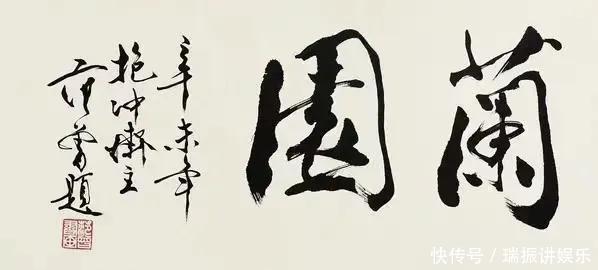 蘭園
辛未年
抱冲齋主
范曾題
快传号 / 瑞振讲娱乐